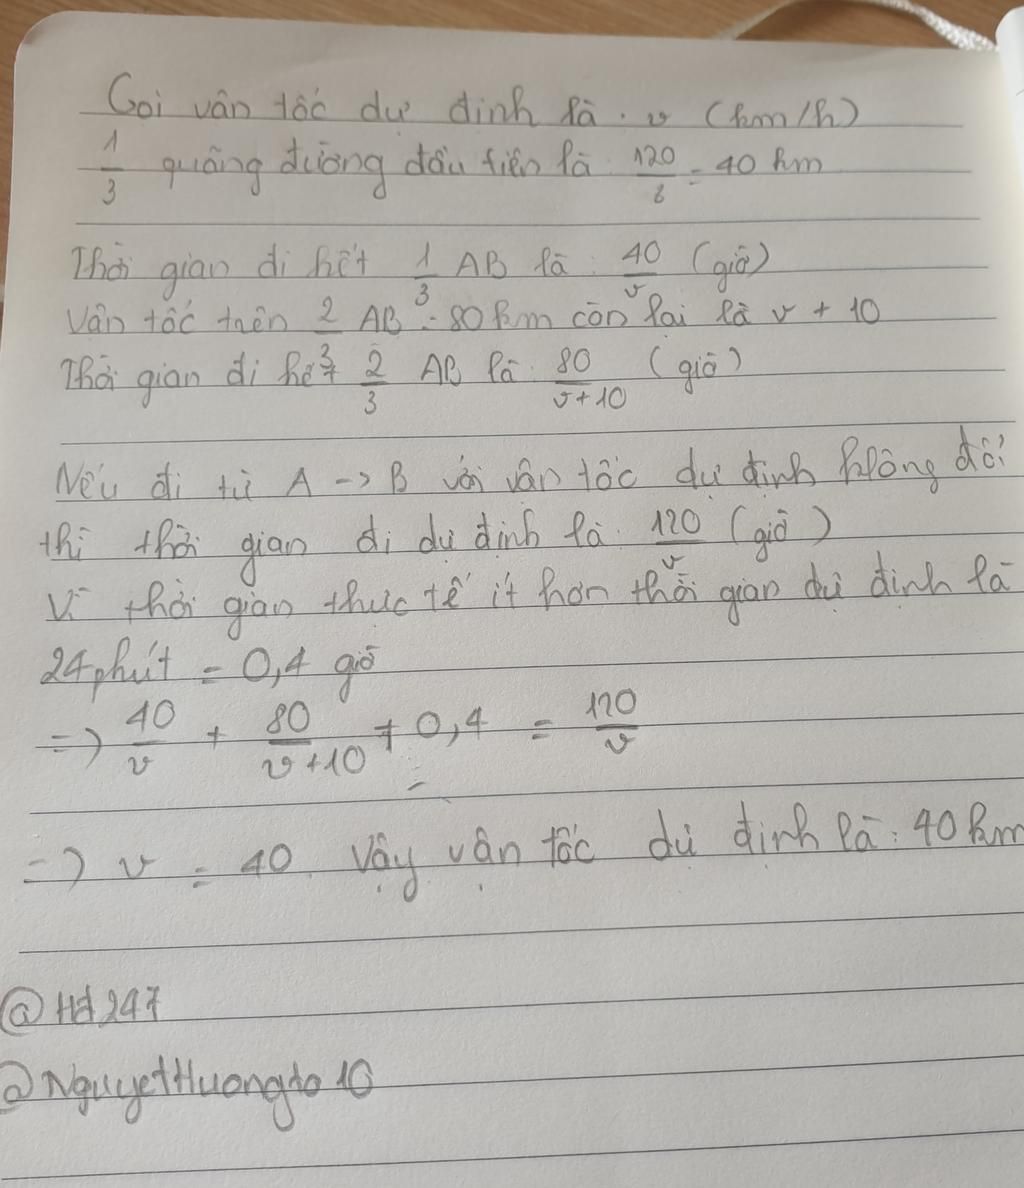 Gọi vân tốc dự đinh là : v (km/h)
1/3 quãng đường đầu tiên là 120/3 = 40 km
Thời gian đi hết 1/3 AB là : 40/v (giờ)
Vận tốc trên 2/3 AB = 80 km còn lại là v + 10
Thời gian đi hết 2/3 AB là : 80/v+10 (giờ)
Nếu đi từ A -> B với vận tốc dự định không đổi
thì thời gian đi dự định là 120/v (giờ)
Vì thời gian thực tế ít hơn thời gian dự định là
24 phút = 0,4 giờ
=> 40/v + 80/v+10 + 0,4 = 120/v
=> v = 40. Vậy vận tốc dự định là : 40 km
@Hd247
@NguyetHuongto10